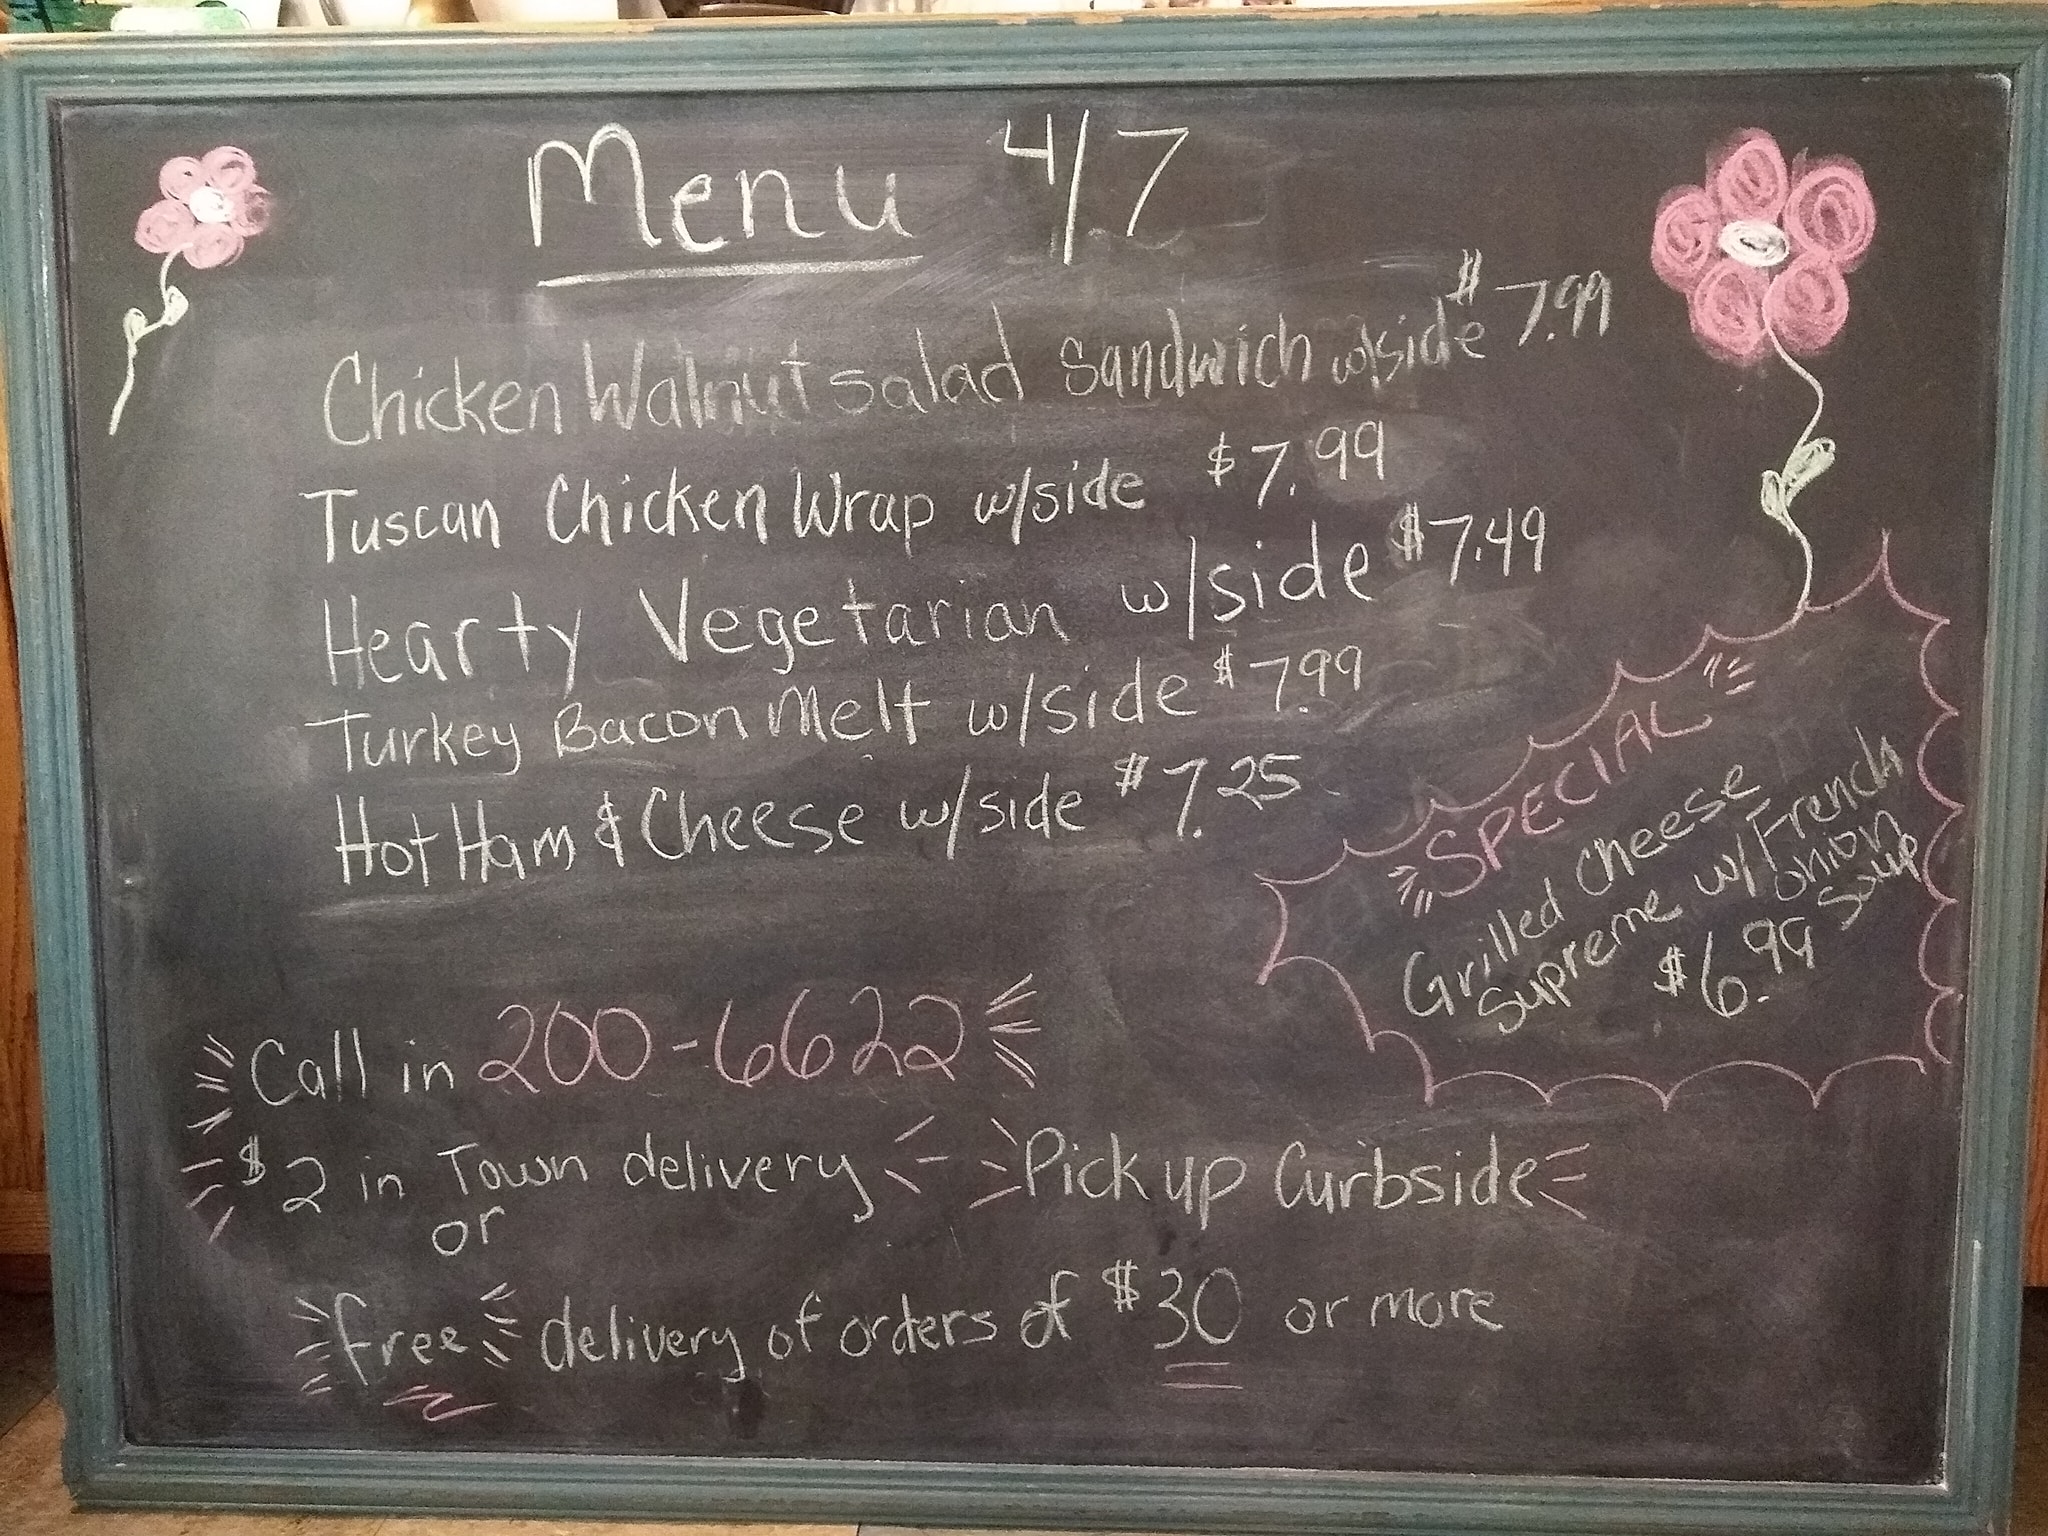 Menu 4/7
Chicken Walnut salad Sandwich w/side $7.99
Tuscan Chicken Wrap w/side $7.99
Hearty Vegetarian w/side $7.49
Turkey Bacon Melt w/side $7.99
Hot Ham & Cheese w/side $7.25
SPECIAL
Grilled Cheese
Supreme w/French
onion
Soup
$6.99
Call in 200-6622
$2 in Town delivery
Pick up Curbside
or
free delivery of orders of $30 or more